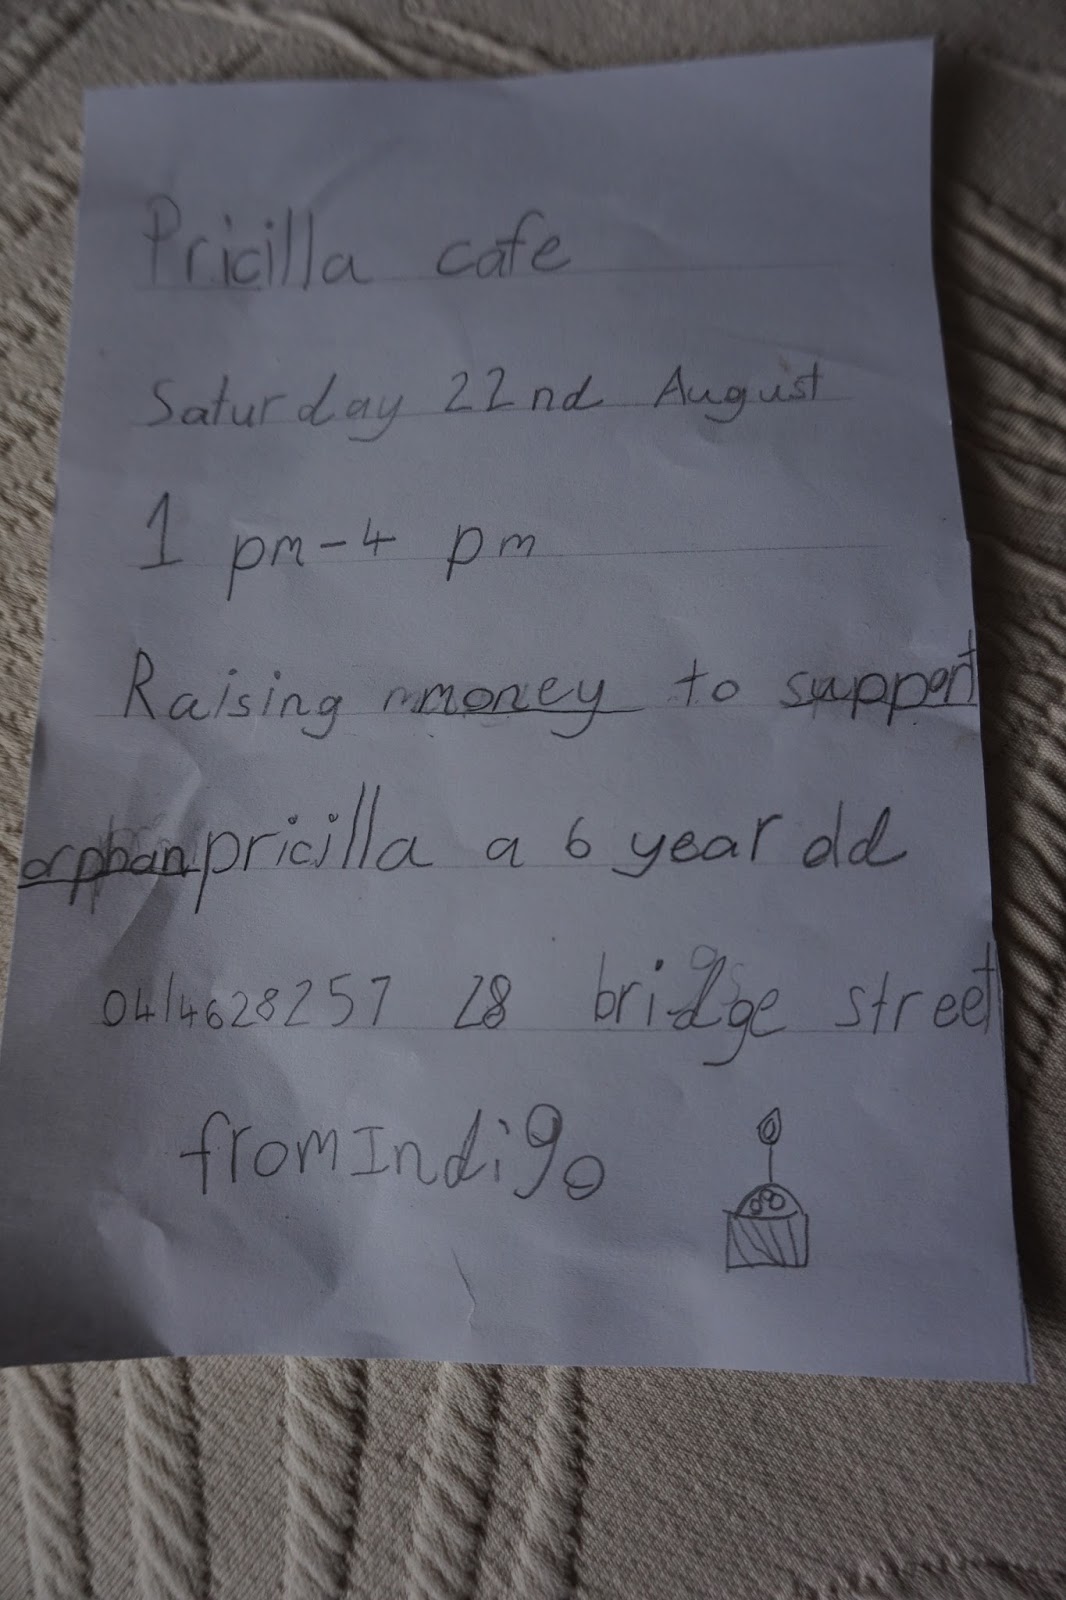 Pricilla cafe
Saturday 22nd August
1 pm-4 pm
Raising money to support
orphan pricilla a 6 year old
0414628257 28 bridge street
from Indigo